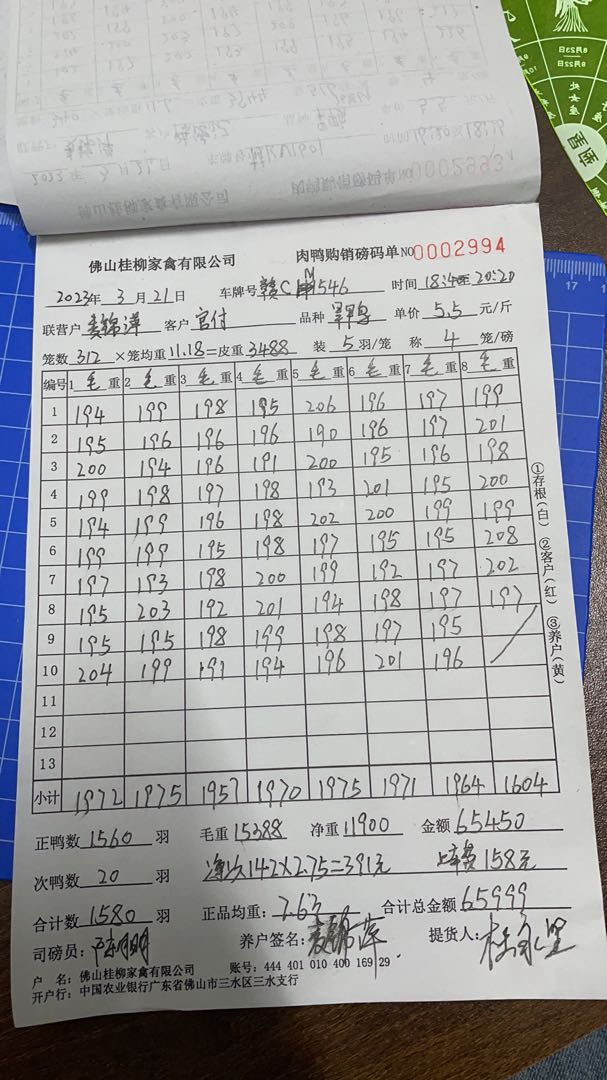 佛山桂柳家禽有限公司 肉鸭购销磅码单 NO 0002994
2023年 3月21日 车牌号 赣CM1546 时间 18:40至20:20
联营户 麦锦萍 客户 宫付 品种 单价 5.5 元/斤
笼数 312 ×笼均重 11.18=皮重 3488 装 5 羽/笼 称 4 笼/磅
编号 1 毛 重 2 毛 重 3 毛 重 4 毛 重 5 毛 重 6 毛 重 7 毛 重 8 毛 重
1 194 199 198 195 206 196 197 199
2 195 196 196 196 190 196 197 201
3 200 194 196 191 200 195 196 198
4 199 198 197 198 193 201 195 200
5 194 199 196 198 202 200 199 199
6 199 199 195 198 197 195 195 208
7 197 193 198 200 199 192 197 202
8 195 203 192 201 194 198 197 197
9 195 195 198 199 198 197 195
10 204 199 191 194 196 201 196
11
12
13
小计 1972 1975 1957 1970 1975 1971 1964 1604
①存根(白) ②客户(红) ③养户(黄)
正鸭数 1560 羽 毛重 15388 净重 11900 金额 65450
次鸭数 20 羽 142×2.75=391元 上车费 158元
合计数 1580 羽 正品均重: 7.63 合计总金额 65999
司磅员: 养户签名: 麦锦萍 提货人:
户 名: 佛山桂柳家禽有限公司 账号: 444 401 010 400 169 29
开户行: 中国农业银行广东省佛山市三水区三水支行
0002993
8月23日
9月22日
处女座
香酒
17